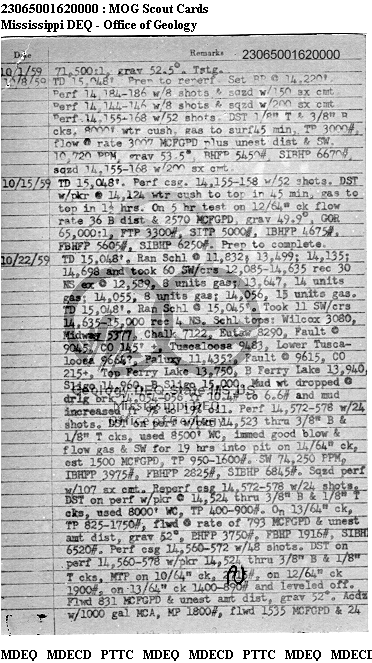 23065001620000 : MOG Scout Cards
Mississippi DEQ - Office of Geology
Date Remarks 23065001620000
10/1/59 71,500:1, grav 52.5°. Tstg.
10/8/59 TD 15,048'. Prep to reperf. Set BP @ 14,220'.
Perf 14,184-186 w/8 shots & sqzd w/150 sx cmt
Perf 14,144-146 w/8 shots & sqzd w/200 sx cmt
Perf 14,155-168 w/52 shots. DST 1/8" T & 3/8" B
cks, 8000' wtr cush, gas to surf 45 min, TP 3000#,
flow @ rate 3007 MCFGPD plus unest dist & SW.
10,720 PPM, grav 53.5° BHFP 5450# SIBHP 6670#,
sqzd 14,155-168 w/200 sx cmt.
10/15/59 TD 15,048'. Perf csg. 14,155-158 w/52 shots. DST
w/pkr @ 14,124 wtr cush to top in 45 min, gas to
top in 1¼ hrs. On 5 hr test on 12/64" ck flow
rate 36 B dist & 2570 MCFGPD, grav 49.9°, GOR
65,000:1, FTP 3300#, SITP 5000#, IBHFP 4675#,
FBHFP 5605#, SIBHP 6250#. Prep to complete.
10/22/59 TD 15,048'. Ran Schl @ 11,832; 13,499; 14,135;
14,698 and took 60 SW/crs 12,085-14,635 rec 30
NS ex @ 12,589, 8 units gas; 13,647, 14 units
gas; 14,055, 8 units gas; 14,056, 15 units gas.
TD 15,048'. Ran Schl @ 15,045'. Took 11 SW/crs
14,635-15,000 rec 4 NS. Schl tops: Wilcox 3080,
Midway 5377, Chalk 7122, Eutaw 8290, Fault @
9045, CO 145', Tuscaloosa 9483, Lower Tusca-
loosa 9664, Paluxy 11,4352, Fault @ 9615, CO
215+. Top Ferry Lake 13,750, B Ferry Lake 13,940,
Sligo 14,960, B Sligo 15,000. Mud wt dropped @
drlg brk 14,054-056 fr 10.4# to 6.6# and mud
increased. Perf 14,572-578 w/24
shots. DST perf w/pkr 14,523 thru 3/8" B &
1/8" T cks, used 8500' WC, immed good blow &
flow gas & SW for 19 hrs into pit on 14/64" ck,
est 1500 MCFGPD, TP 950-1600#. SW 74,250 PPM,
IBHFP 3975#, FBHFP 2825#, SIBHP 6845#. Sqzd perf
w/107 sx cmt. Reperf csg 14,572-578 w/24 shots.
DST on perf w/pkr @ 14,524 thru 3/8" B & 1/8" T
cks, used 8000' WC, TP 400-900#. On 13/64" ck,
TP 825-1750#, flwd @ rate of 793 MCFGPD & unest
amt dist, grav 52°, BHFP 3750#, FBHP 1916#, SIBH
6520#. Perf csg 14,560-572 w/48 shots. DST on
perf 14,560-578 w/pkr 14,524 thru 3/8" B & 1/8"
T cks, MTP on 10/64" ck, on 12/64" ck
1900#, on 13/64" ck 1400-890# and leveled off.
Flwd 831 MCFGPD & unest amt dist, grav 52° Acdz
w/1000 gal MCA, WP 1800#, flwd 1535 MCFGPD & 24
MDEQ MDECD PTTC MDEQ MDECD PTTC MDEQ MDECI